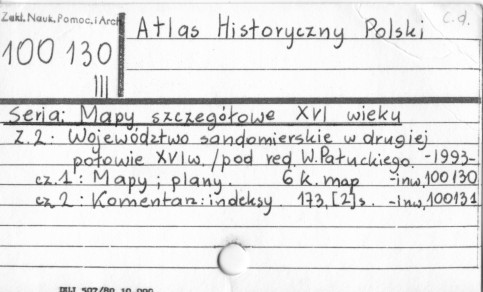 Zakł. Nauk. Pomoc. i Arch
100 130
III
Atlas Historyczny Polski
c.d.
Seria: Mapy szczegółowe XVI wieku
Z.2: Województwo sandomierskie w drugiej
połowie XVI w. / pod red. W. Pałuckiego. -1993-
cz.1: Mapy i plany. 6 k. map -inw. 100130
cz 2: Komentarz: indeksy. 173, [2] s. -inw. 100131